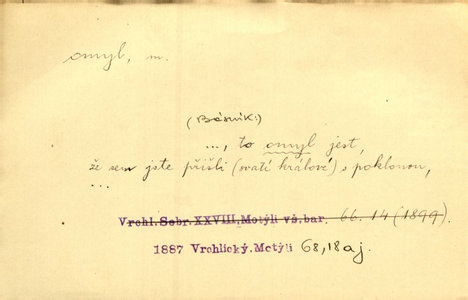 omyl, m.
(Básník:)
..., to omyl jest,
že sem jste přišli (svatí králové) s poklonou,
...
Vrchl.Sebr.XXVIII.Motýli vš.bar. 66.14 (1899)
1887 Vrchlický.Motýli 68,18 aj.